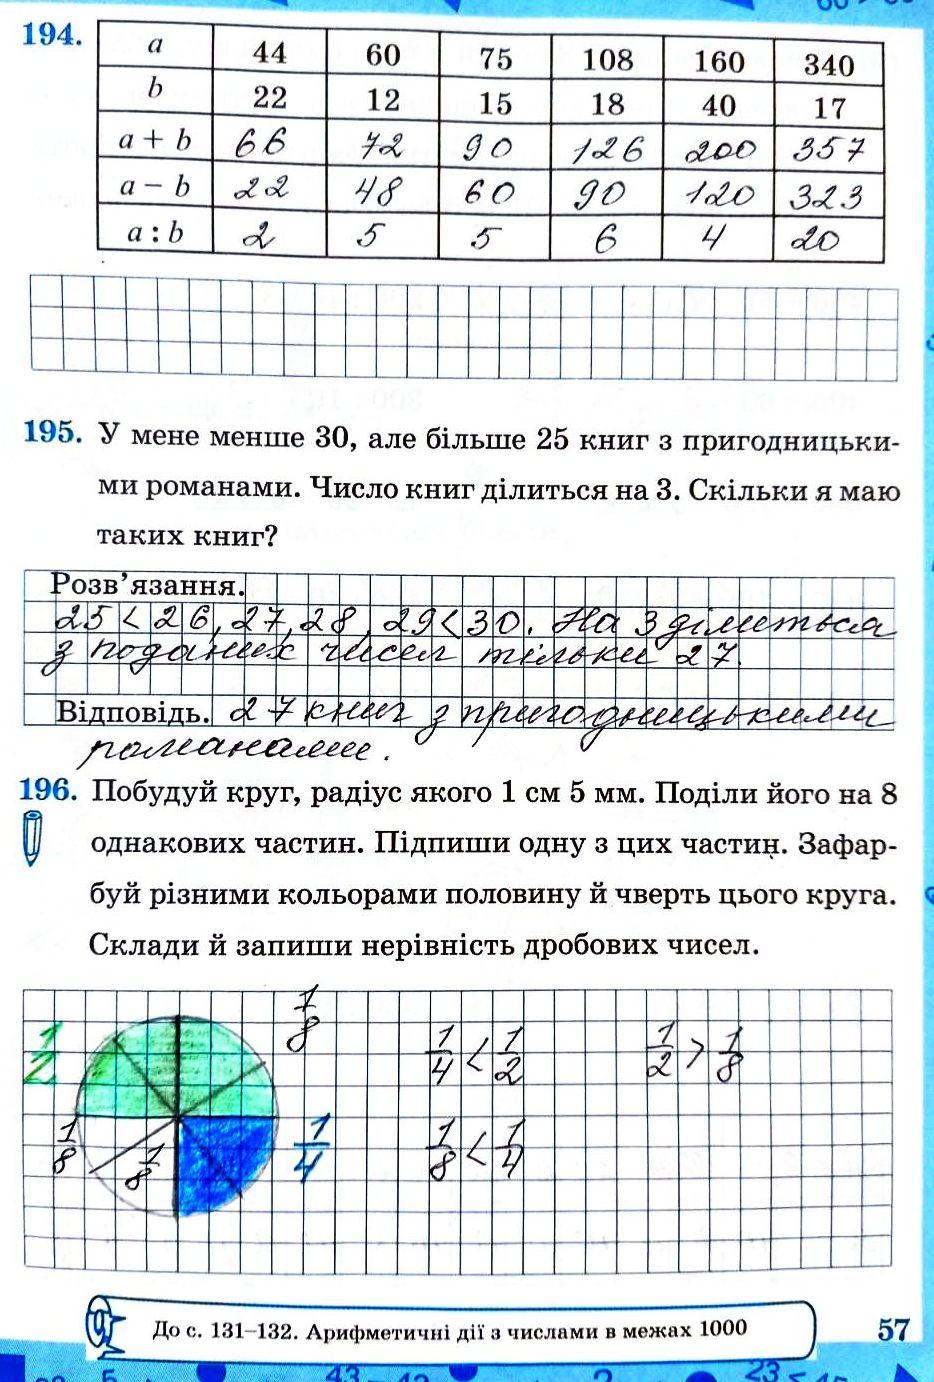 194.
a 44 60 75 108 160 340
b 22 12 15 18 40 17
a + b 66 72 90 126 200 357
a − b 22 48 60 90 120 323
a : b 2 5 5 6 4 20
195. У мене менше 30, але більше 25 книг з пригодницьки-
ми романами. Число книг ділиться на 3. Скільки я маю
таких книг?
Розв’язання.
25 < 26, 27, 28, 29 < 30. На 3 ділиться
з поданих чисел тільки 27.
Відповідь. 27 книг з пригодницькими
романами.
196. Побудуй круг, радіус якого 1 см 5 мм. Поділи його на 8
однакових частин. Підпиши одну з цих частин. Зафар-
буй різними кольорами половину й чверть цього круга.
Склади й запиши нерівність дробових чисел.
1/8
1/2 1/4 < 1/2 1/2 > 1/8
1/8 1/8 1/4 1/8 < 1/4
До с. 131–132. Арифметичні дії з числами в межах 1000 57